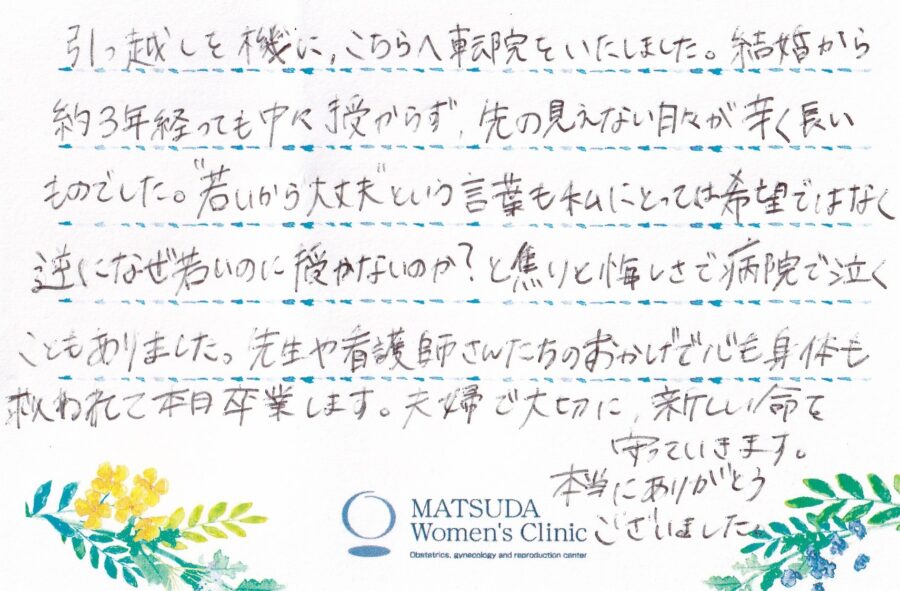 引っ越しを機に、こちらへ転院をいたしました。結婚から
約3年経っても中々授からず、先の見えない日々が辛く長い
ものでした。"若いから大丈夫"という言葉も私にとっては希望ではなく
逆になぜ若いのに授かないのか?と焦りと悔しさで病院で泣く
こともありました。先生や看護師さんたちのおかげで心も身体も
救われて本日卒業します。夫婦で大切に、新しい命を
守っていきます。
本当にありがとう
ございました。
MATSUDA
Women's Clinic
Obstetrics, gynecology and reproduction center